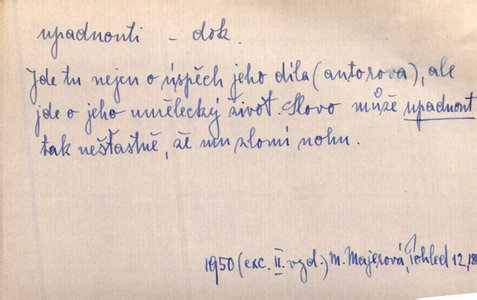 upadnouti – dok.
Jde tu nejen o úspěch jeho díla (autorova), ale
jde o jeho umělecký život. Slovo může upadnout
tak nešťastně, že mu zlomí nohu.
1950 (exc. II. vyd.) M. Majerová, Pohled 12,